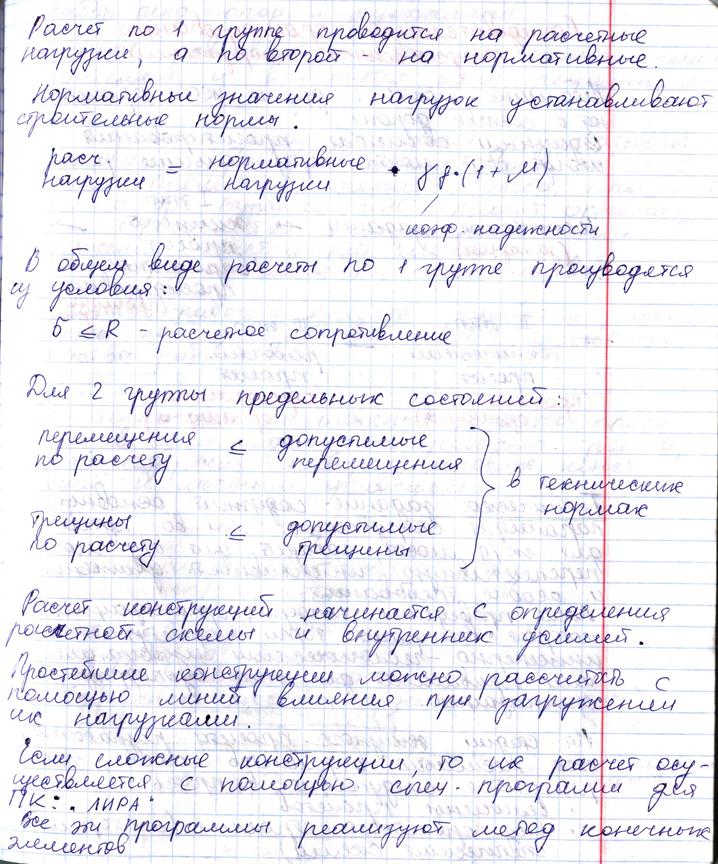 Расчет по 1 группе проводится на расчетные
нагрузки, а по второй - на нормативные.
Нормативные значения нагрузок устанавливают
строительные нормы.
расч. нагрузки = нормативные нагрузки • γf·(1+μ)
коэф. надежности
В общем виде расчеты по 1 группе производятся
из условия:
б ≤ R - расчетное сопротивление
Для 2 группы предельных состояний:
перемещения по расчету ≤ допустимые перемещения
трещины по расчету ≤ допустимые трещены
в технических
нормах
Расчет конструкций начинается с определения
расчетной схемы и внутренних усилий.
Простейшие конструкции можно рассчитать с
помощью линий влияния при загружении
их нагрузками.
Если сложные конструкции, то их расчет осу-
ществляется с помощью спец. программ для
ПК: "ЛИРА"
Все эти программы реализуют метод конечных
элементов